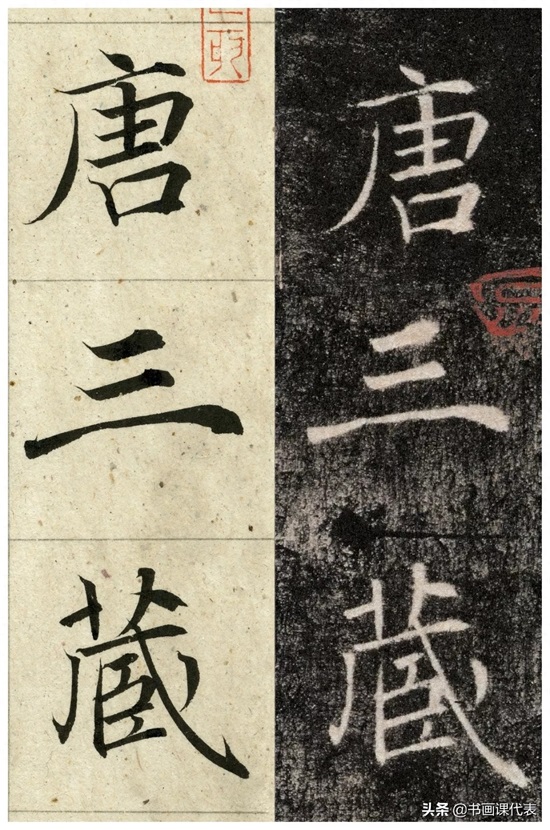 唐三藏
唐三藏
头条 @书画课代表